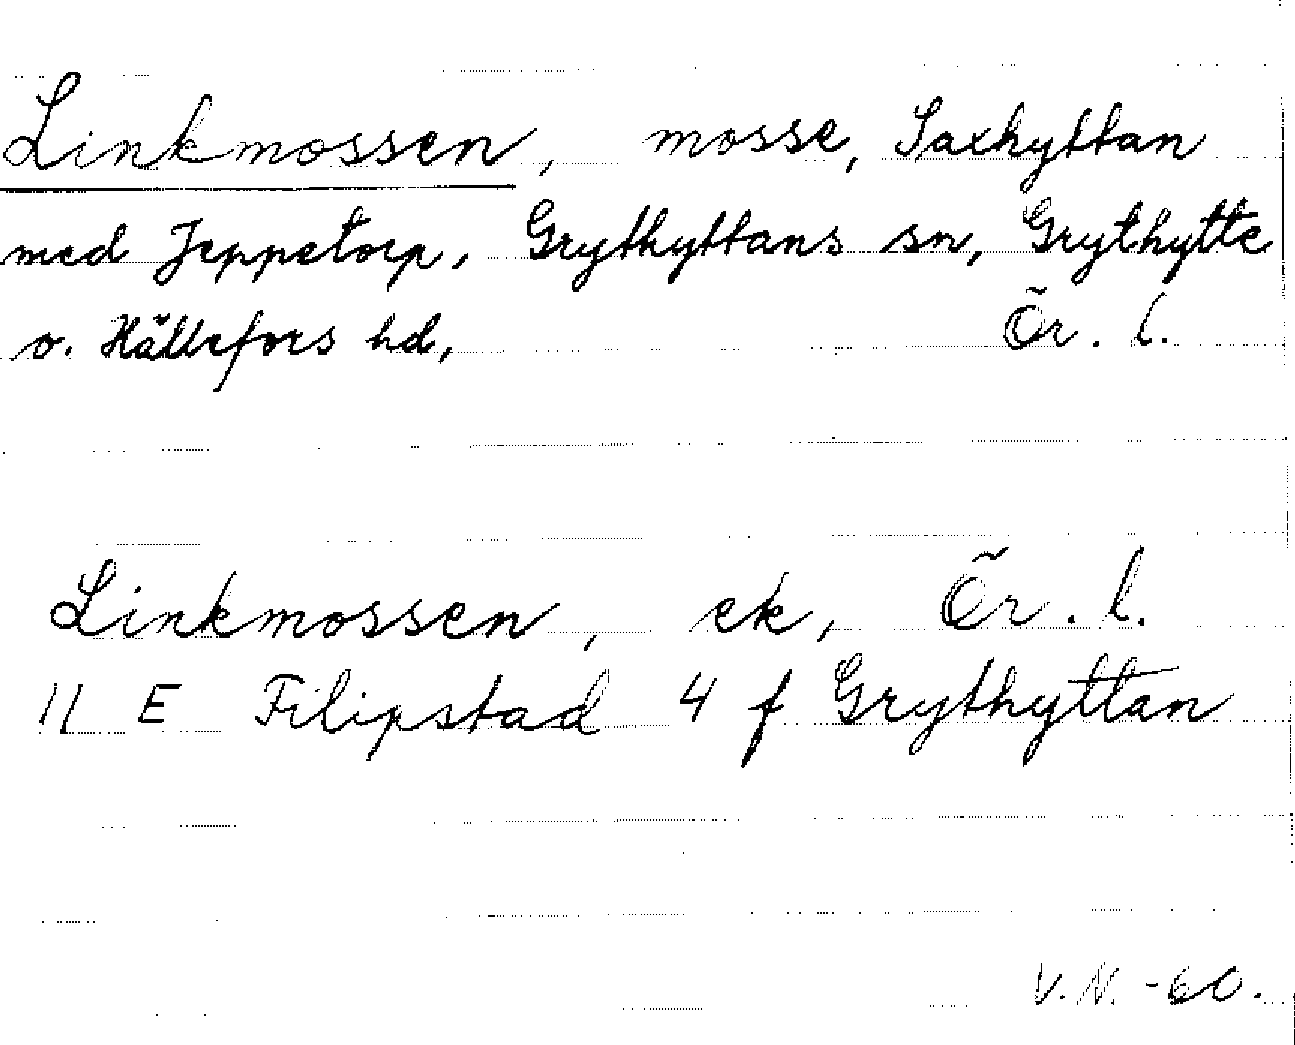 Linkmossen, mosse, Saxhyttan
med Jeppetorp, Grythyttans sn, Grythytte
o. Hällefors hd, Ör. l.
Linkmossen, ek, Ör. l.
11 E Filipstad 4 f Grythyttan
V. N. -60.